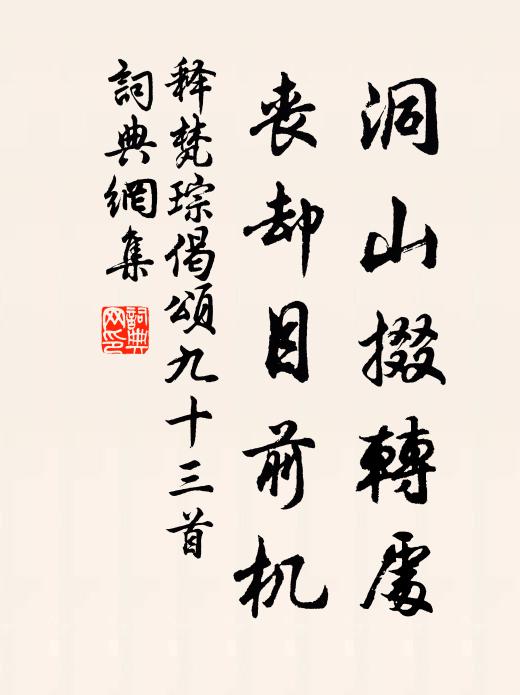 洞山掇轉處
喪却目前机
释梵琮偈頌九十三首
詞典網集
詞典網印